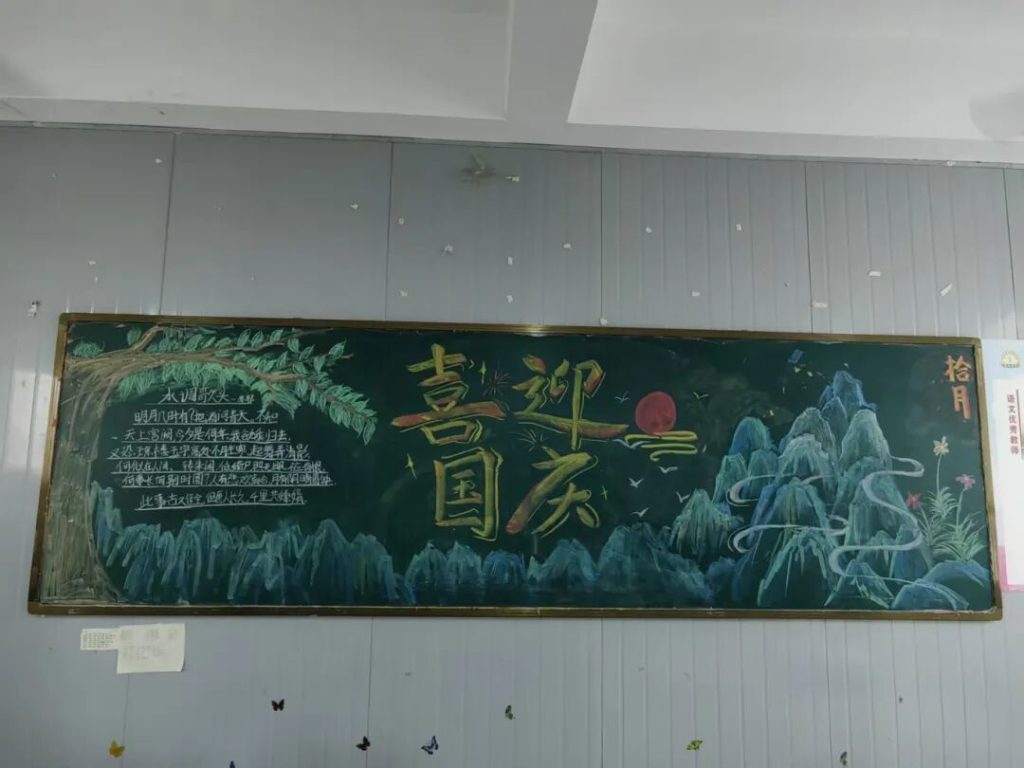 水调歌头
明月几时有
天上宫阙 今夕是何年 我欲
归去
又恐琼楼玉宇 高处不胜寒 起舞弄清影
何似在人间 转朱阁 低绮户 照无眠
何事长向别时圆 人有悲欢离合 月有阴晴圆缺
此事古难全 但愿人长久 千里共婵娟
喜迎
国庆
拾月
语文优秀教师